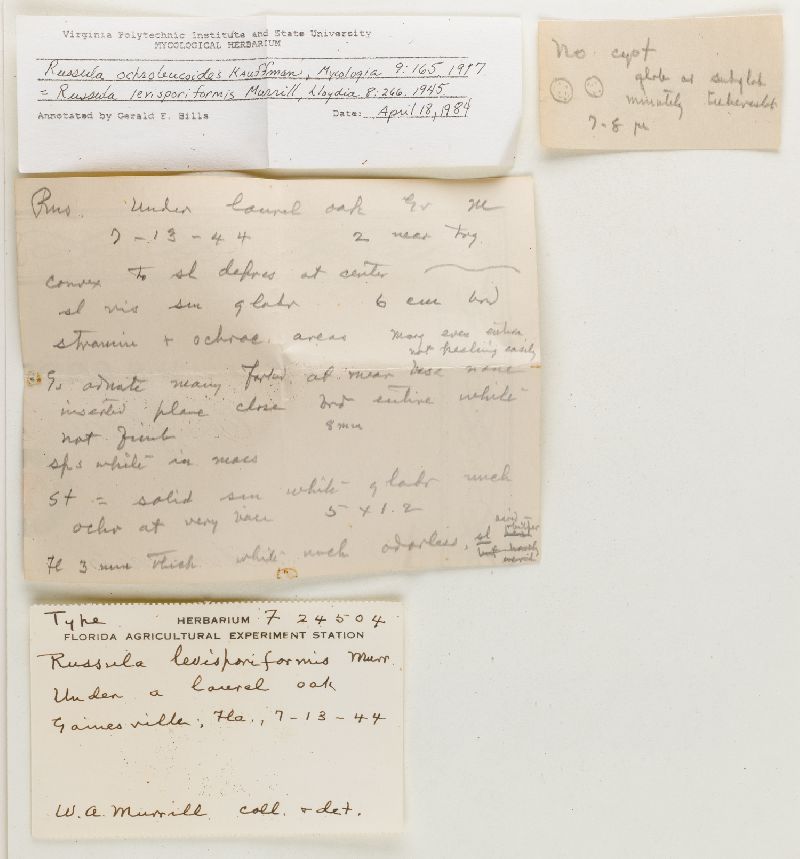 Virginia Polytechnic Institute and State University
MYCOLOGICAL HERBARIUM
Russula ochroleucoides Kauffman, Mycologia 9:165. 1917
= Russula levisporiformis Murrill, Lloydia 8:266. 1945
Annotated by Gerald F. Bills Date: April 18, 1984
No cyst
globe or subglob
minutely tuberculate
7-8 µ
Rus. Under laurel oak Gv M
7-13-44 2 near Trg
convex to sl depres at center
sl vis sm glabr 6 cm brd
stramin + ochrac. areas marg even entire
not peeling easily
Gs adnate many forked at near base none
inserted plane close brd entire white
8 mm
not
sps white in mass
St = solid sm white glabr unch
ochr at very base 5 x 1.2
Fl 3 mm thick white unch odorless, sl
Type HERBARIUM F 24504
FLORIDA AGRICULTURAL EXPERIMENT STATION
Russula levisporiformis Murr.
Under a laurel oak
Gainesville, Fla., 7-13-44
W. A. Murrill coll. + det.